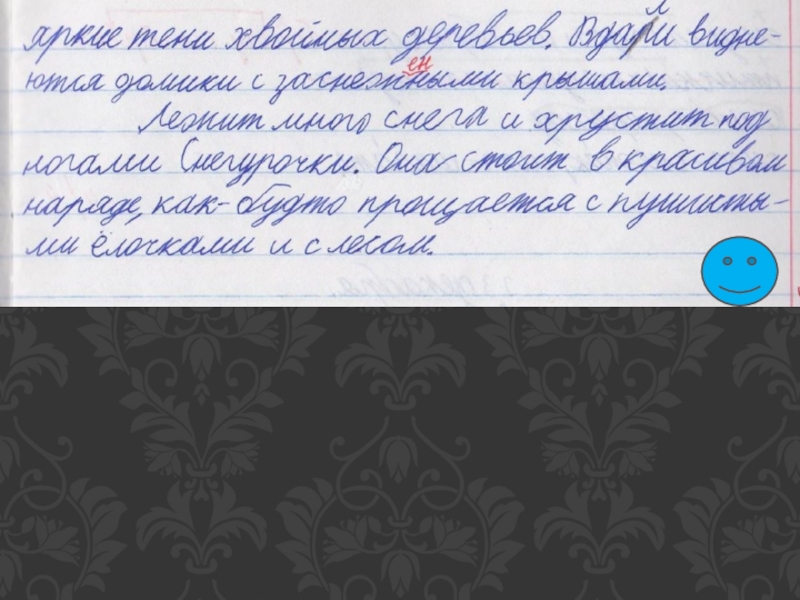 яркие тени хвойных деревьев. Вдали видне-
ен
ются домики с заснежными крышами.
Лежит много снега и хрустит под
ногами Снегурочки. Она стоит в красивом
наряде, как-будто прощается с пушисты-
ми ёлочками и с лесом.